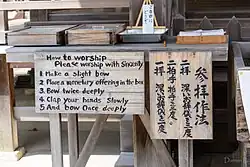 How to worship
Please worship with Sincerely
1. Make a slight bow
2. Place a monetary offering in the box
3. Bow twice deeply
4. Clap your hands Slowly
5. And Bow Once deeply
参拝作法
二拝
二拍手
一拝